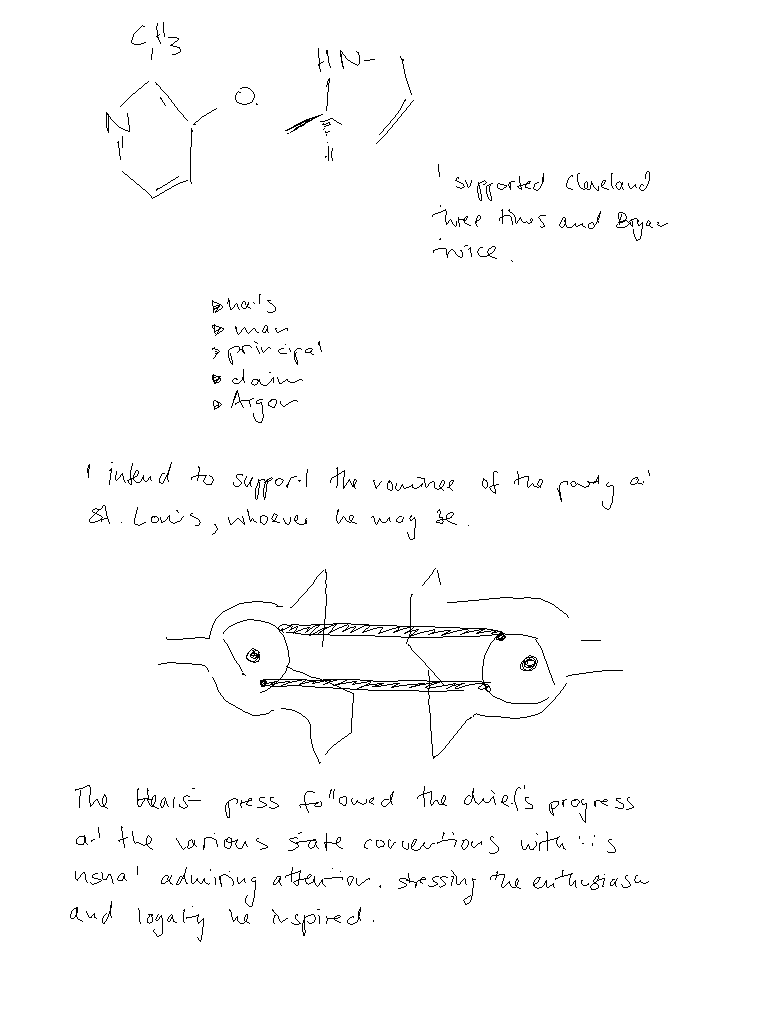 CH3
N
O.
HN-
H
I supported Cleveland
three times and Bryan
twice.
hails
man
principal
claim
Argon
I intend to support the nominee of the party at
St. Louis, whoever he may be.
The Hearst press followed the chief's progress
at the various state conventions with its
usual admiring attention. stressing the enthusiasm
and loyalty he inspired.